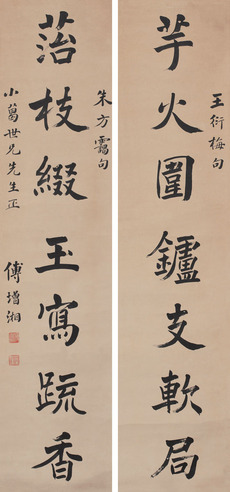 芋火圍鑪支軟局
王衍梅句
苔枝綴玉寫疏香
朱方靄句
小葛世兄先生正
傅增湘